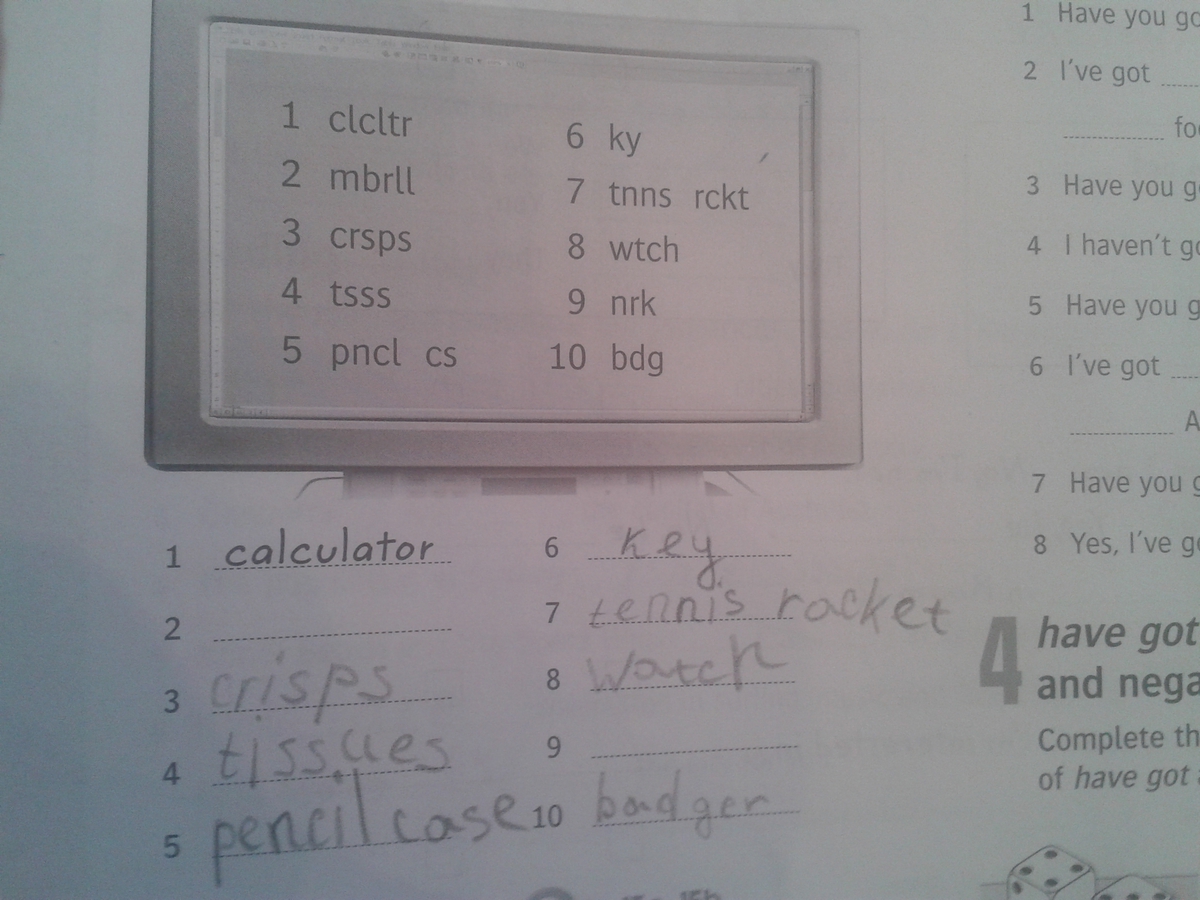 1 clcltr
2 mbrll
3 crsps
4 tsss
5 pncl cs
6 ky
7 tnns rckt
8 wtch
9 nrk
10 bdg
1 calculator
2
3 crisps
4 tissues
5 pencil case
6 key
7 tennis racket
8 watch
9
10 badger
1 Have you go
2 I've got
fo
3 Have you g
4 I haven't go
5 Have you g
6 I've got
A
7 Have you g
8 Yes, I've g
4 have got
and nega
Complete th
of have got